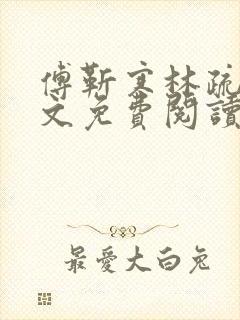 傅靳寒林疏
文免費閱讀
最愛大白兔